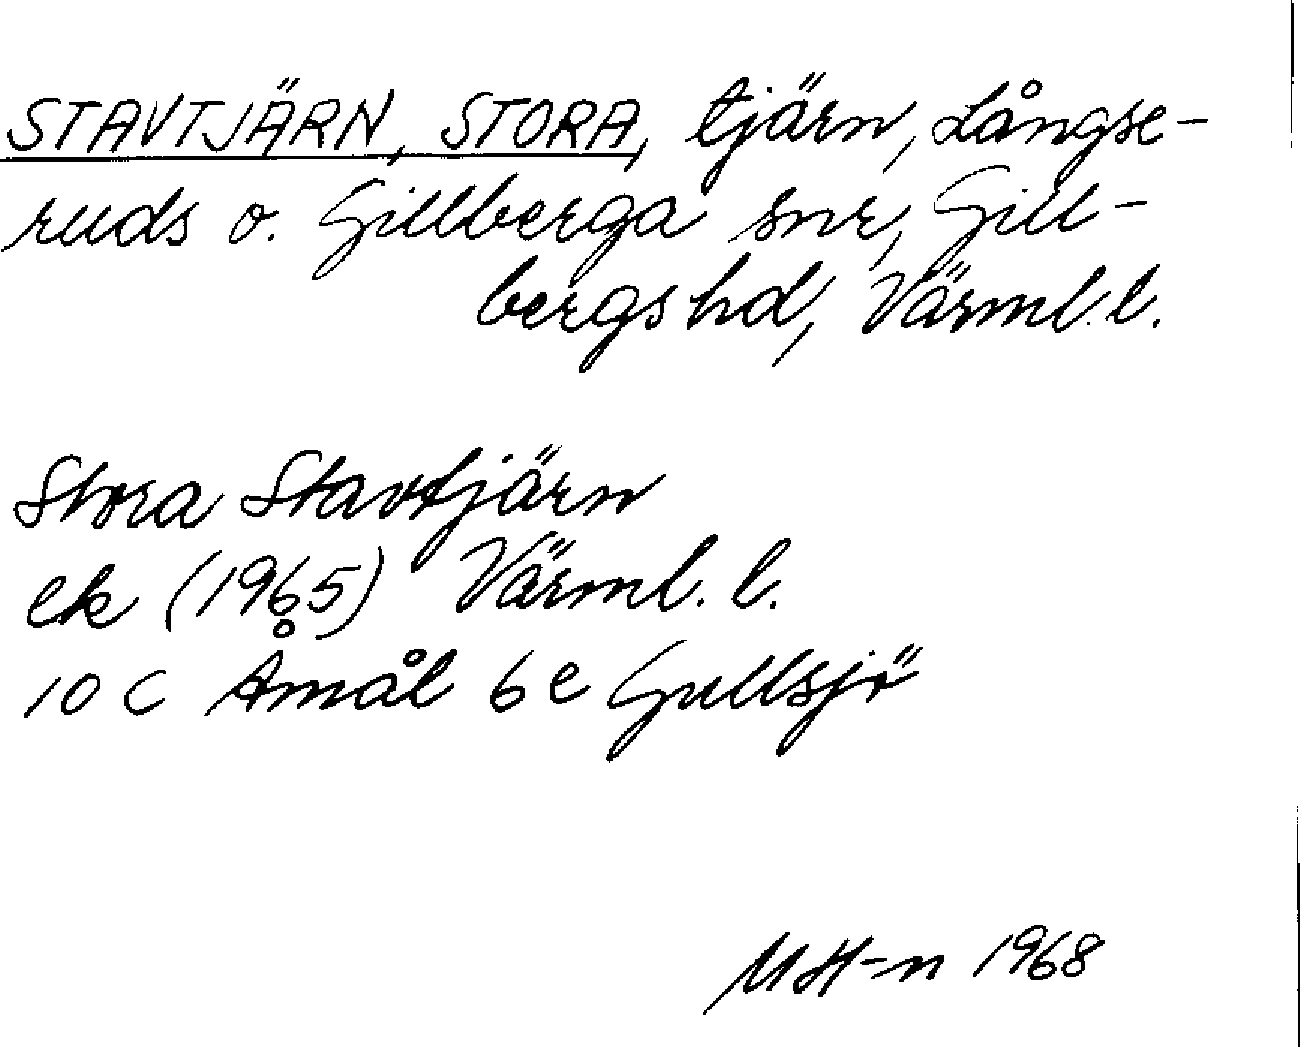 STAVTJÄRN, STORA, tjärn, Långse-
ruds o. Gillberga snr, Gill-
bergs hd, Värml. l.
Stora Stavtjärn
ek (1965) Värml. l.
10 C Åmål 6 e Gullsjö
MH-n 1968